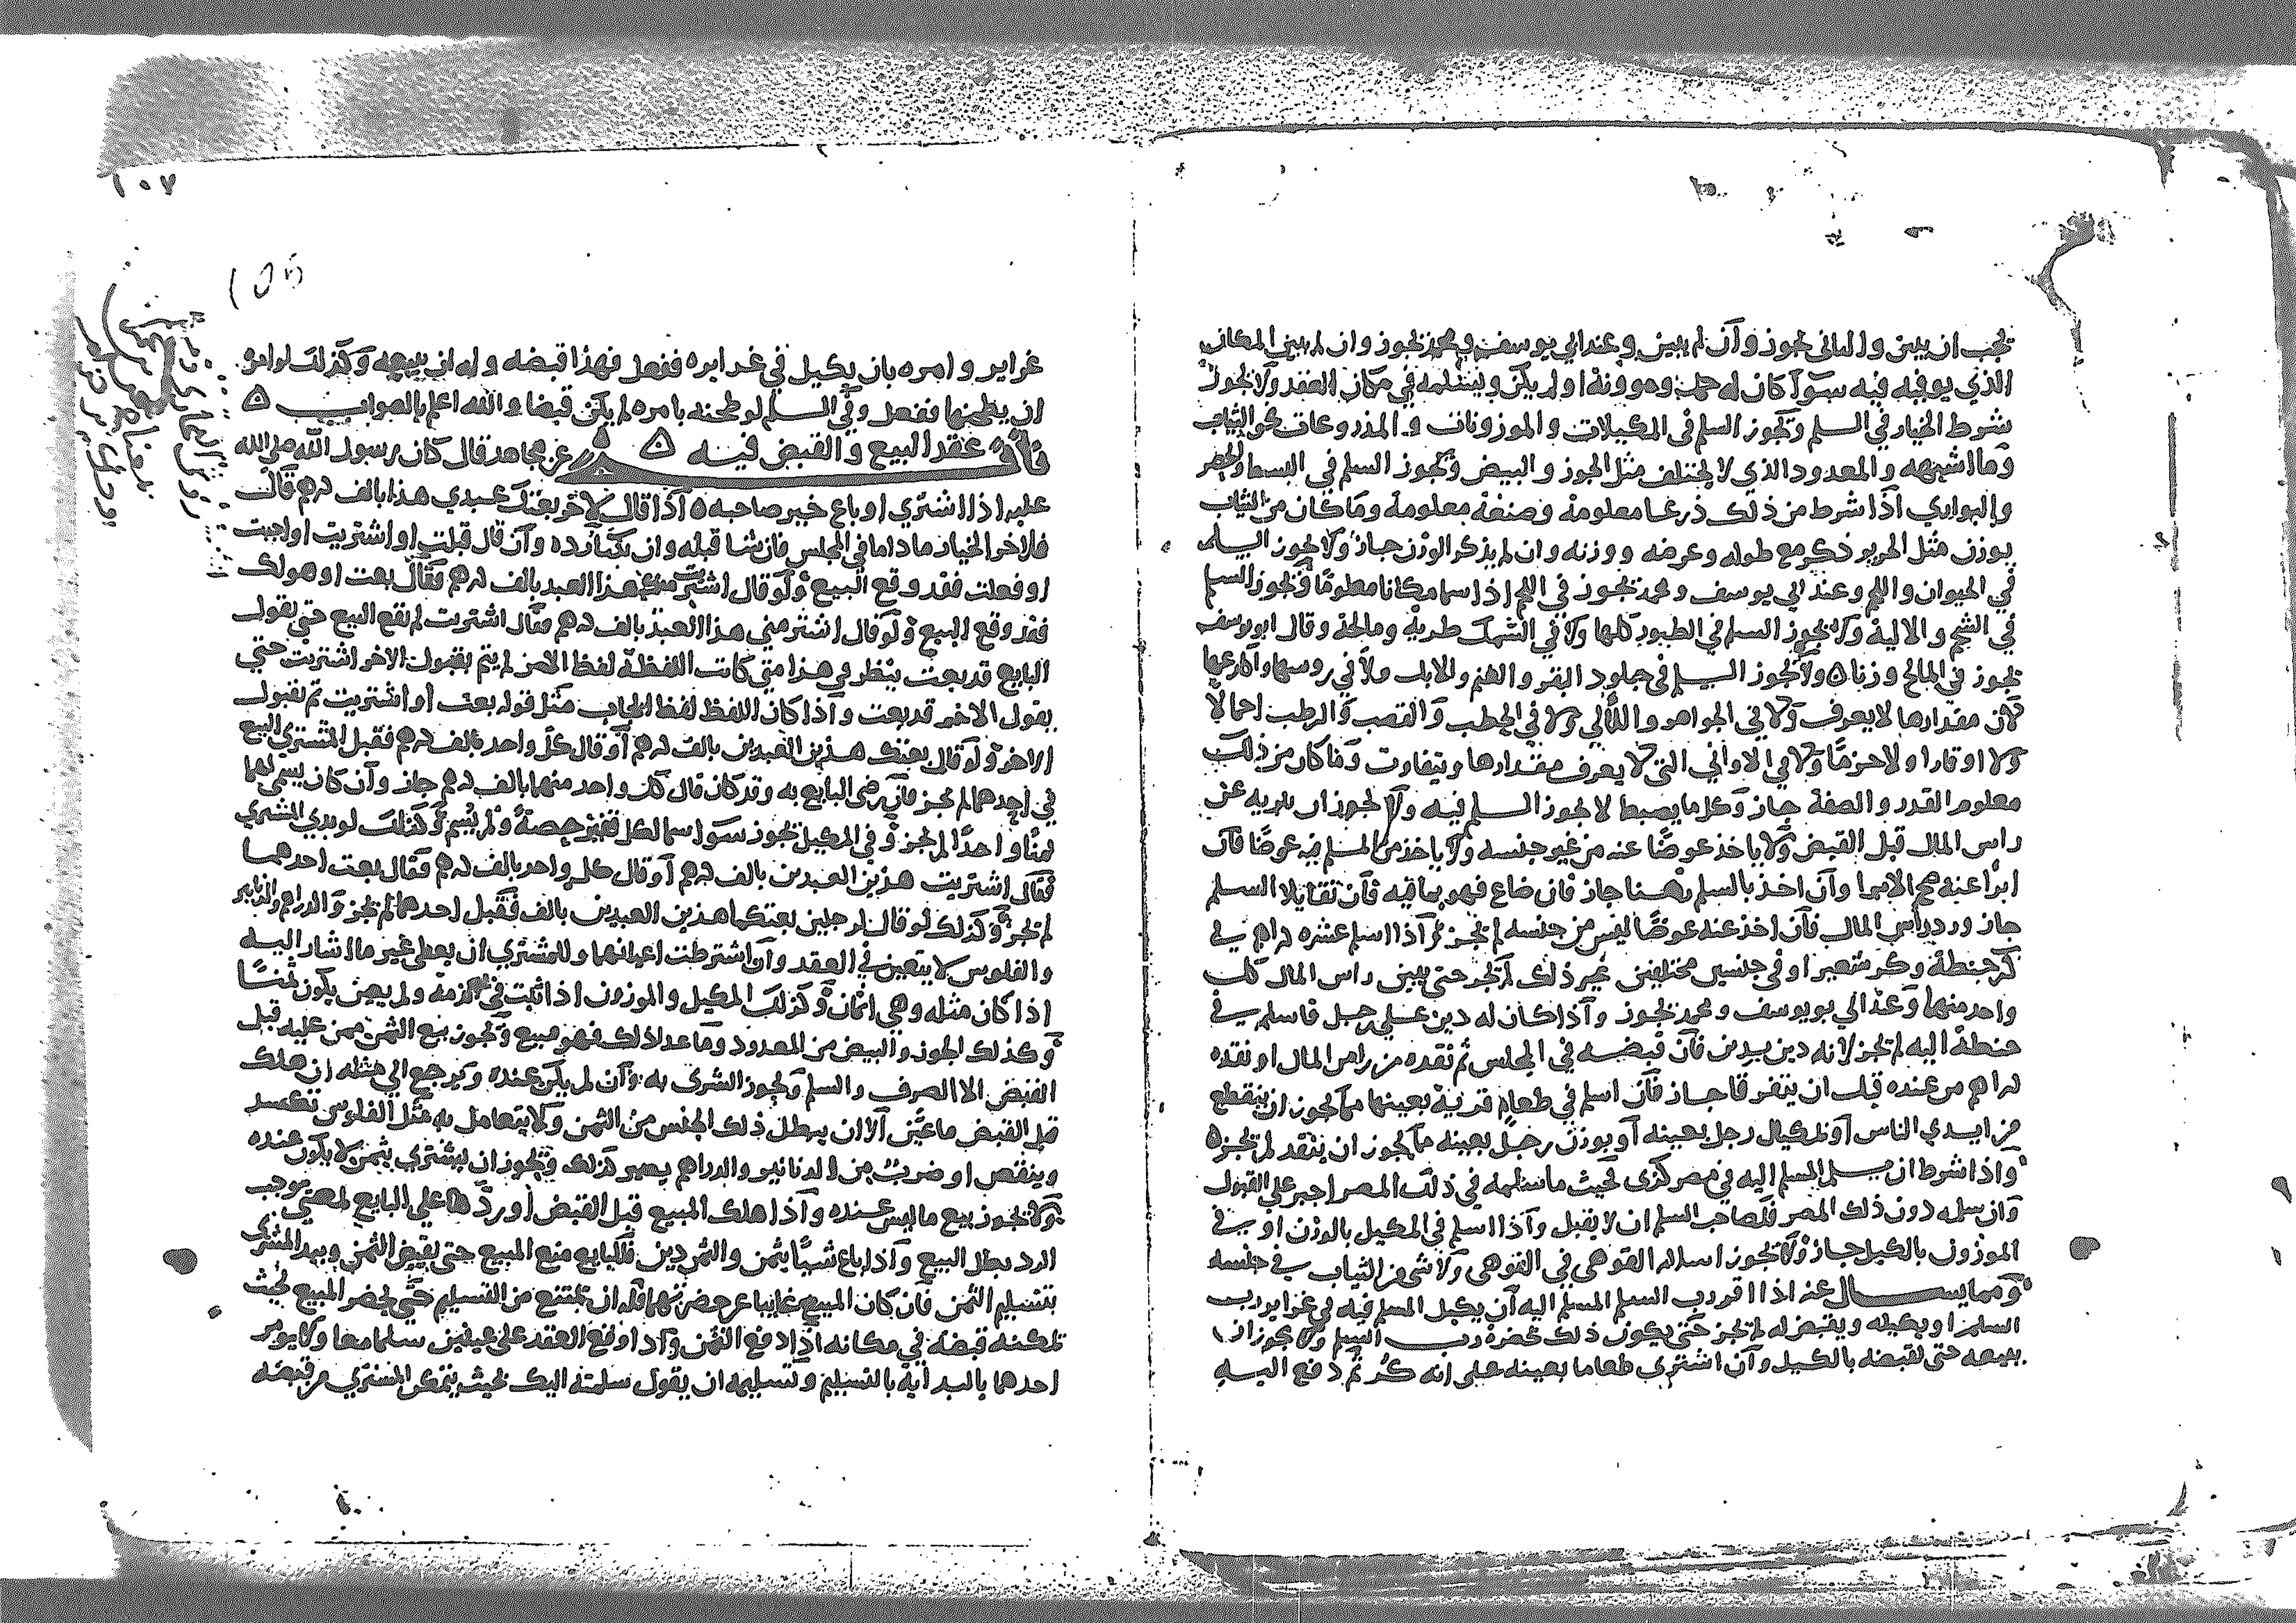 يجب ان يبين والثاني يجوز وان لم يبين وعند ابي يوسف ومحمد يجوز وان لم يبين المكان
الذي يوفيه فيه سوآ كان له حمل وموونة او لم يكن ويسلمه في مكان العقد ولا يجوز
شرط الخيار في السلم ويجوز السلم في المكيلات والموزونات والمذروعات كالثياب
وما اشبهه والمعدود الذي لا يختلف مثل الجوز والبيض ويجوز السلم في البسط والحصر
والبواري اذا شرط من ذلك ذرعا معلومة وصنعة معلومة وما كان من الثياب
يوزن مثل الحرير ذكر مع طوله وعرضه ووزنه وان لم يذكر الوزن جاز ولا يجوز السلم
في الحيوان واللحم وعند ابي يوسف ومحمد يجوز في اللحم اذا سما مكانا معلومًا ويجوز السلم
في الشحم والالية ولا يجوز السلم في الطيور كلها ولا في السمك طريه ومالحه وقال ابو يوسف
يجوز في المالح وزنا ولا يجوز السلم في جلود البقر والغنم والابل ولا في روسها واكارعها
لان مقدارها لا يعرف ولا في الجواهر واللآلي ولا في الحطب والقصب والرطب احمالا
ولا اوقارا ولا حزمًا ولا في الاواني التي لا يعرف مقدارها ويتفاوت وما كان من ذلك
معلوم القدر والصفة جاز وكل ما يضبط لا يجوز السلم فيه ولا يجوز ان يبريه عن
راس المال قبل القبض ولا ياخذ عوضًا عنه من غير جنسه ولا ياخذ من المسلم فيه عوضًا فان
ابرأ عنه صح الابرا وان اخذ بالسلم رهنا جاز فان ضاع فهو بما فيه فان تقايلا السلم
جاز ورد راس المال فان اخذ عنه عوضًا ليس من جنسه لم يجز اذا اسلم عشره دراهم في
كر حنطة وكر شعير او في جنسين مختلفين غير ذلك لم يجز حتى يبين راس المال كل
واحد منها وعند ابي يوسف ومحمد يجوز واذا كان له دين على رجل فاسلم في
حنطة اليه لم يجز لانه دين بدين فان قبضه في المجلس ثم نقده من راس المال او نقده
دراهم من عنده قبل ان يتفرقا جاز فان اسلم في طعام قرية بعينها مما يجوز ان ينقطع
من ايدي الناس او بمكيال رجل بعينه او بوزن رجل بعينه مما يجوز ان يفقد لم يجز ه
واذا شرط ان يسلم المسلم اليه في مصر كذى فحيث ما سلمه في ذلك المصر اجبر على القبول
وان سلمه دون ذلك المصر فلصاحب السلم ان لا يقبل واذا اسلم في المكيل بالوزن او في
الموزون بالكيل جاز ولا يجوز اسلام القوهي في القوهي ولا شي من الثياب في جنسه
ومما يسال عنه اذا امر رب السلم المسلم اليه ان يكيل المسلم فيه في غراير رب
السلم او يكيله ويقبض له لم يجز حتى يكون ذلك بحضرة رب السلم ولا يجوز ان
يبيعه حتى يقبضه بالكيل وان اشترى طعاما بعينه على انه كر ثم دفع اليه
١٠٧
غراير وامره بان يكيل في غرايره ففعل فهذا قبضه وله ان يبيعه وكذلك لو امره
ان يطحنها ففعل وفي السلم لو طحنه بامره لم يكن قبضا والله اعلم بالصواب ه
باب عقد البيع والقبض فيه ه عن مجاهد قال كان رسول الله صلى الله
عليه اذا اشترى او باع خير صاحبه ه اذا قال لاخر بعتك عبدي هذا بالف درهم قال
فلاخر الخيار ما داما في المجلس فان شا قبله وان شا رده وان قال قبلت او اشتريت او اجبت
او فعلت فقد وقع البيع ولو قال اشتريت منك هذا العبد بالف درهم فقال بعت او هو لك
فقد وقع البيع ولو قال اشتر مني هذا العبد بالف درهم فقال اشتريت لم يقع البيع حتى يقول
البايع قد بعت ينظر في هذا متى كانت اللفظة لفظ الامر لم يتم بقبول الاخر اشتريت حتى
يقول الاخر قد بعت واذا كان اللفظ لفظ ايجاب مثل قوله بعت او اشتريت تم بقبول
الاخر ولو قال بعتك هذين العبدين بالف درهم او قال كل واحد بالف درهم فقبل المشتري البيع
في احدهما لم يجز فان رضى البايع به وقد كان قال كل واحد منهما بالف درهم جاز وان كان يسمي لهما
ثمنًا واحدًا لم يجز وفي المكيل يجوز سوا سما لكل قفيز حصة او لم يسم وكذلك لو بدى المشتري
فقال اشتريت هذين العبدين بالف درهم او قال كل واحد بالف درهم فقال بعت احدهما
لم يجز وكذلك لو قال لرجلين بعتكما هذين العبدين بالف فقبل احدهما لم يجز والدراهم والدنانير
والفلوس لا يتعين في العقد وان اشترطت اعيانها وللمشتري ان يعطى غير ما اشار اليه
اذا كان مثله وهي اثمان وكذلك المكيل والموزون اذا ثبت في الذمة ولم يعين يكون ثمنًا
وكذلك الجوز والبيض من المعدود وما عدا ذلك فهو مبيع ويجوز بيع الثمن ممن عليه قبل
القبض الا الصرف والسلم ويجوز الشرى به وان لم يكن عنده ويرجع الى مثله ان هلك
قبل القبض ما عين الا ان يبطل ذلك الجنس من الثمن ولا يتعامل به مثل الفلوس تكسد
وينتقص او ضرب من الدنانير والدراهم يصير كذلك ويجوز ان يشتري بثمن لا يكون عنده
ولا يجوز بيع ما ليس عنده واذا هلك المبيع قبل القبض او ردها على البايع لمعنى يوجب
الرد بطل البيع واذا باع شيئًا بثمن والثمن دين فللبايع منع المبيع حتى يقبض الثمن ويبدا المشتري
بتسليم الثمن فان كان المبيع غايبا عن حضرتهما فله ان يمتنع من التسليم حتى يحضر المبيع بحيث
يمكنه قبضه في مكانه اذا دفع الثمن واذا وقع العقد على عينين سلما معا ولا يومر
احدهما بالبداية بالتسليم وتسليمه ان يقول سلمته اليك بحيث يتمكن المشتري من قبضه